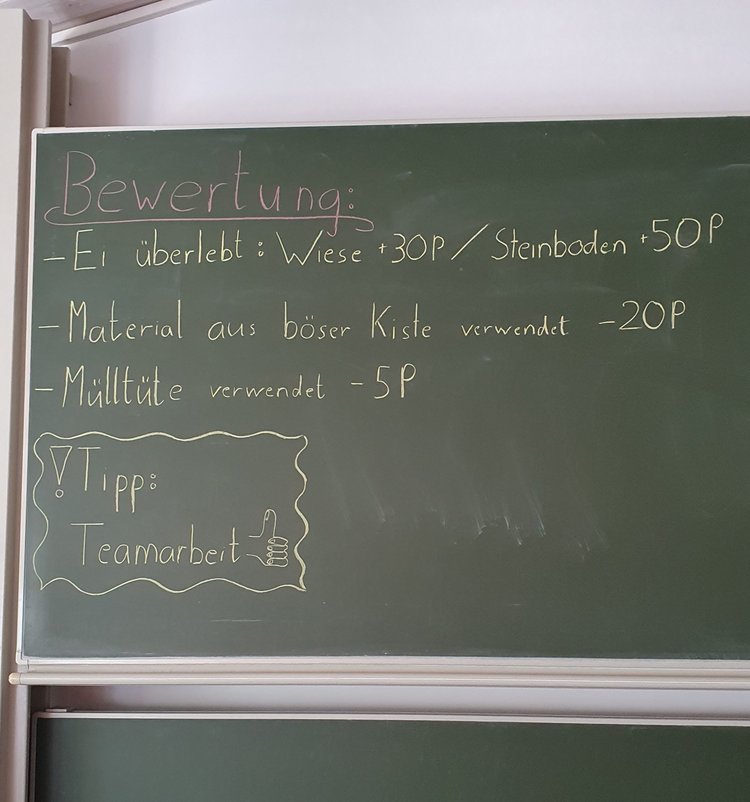 Bewertung:
- Ei überlebt: Wiese +30P / Steinboden +50P
- Material aus böser Kiste verwendet -20P
- Mülltüte verwendet -5P
! Tipp:
Teamarbeit